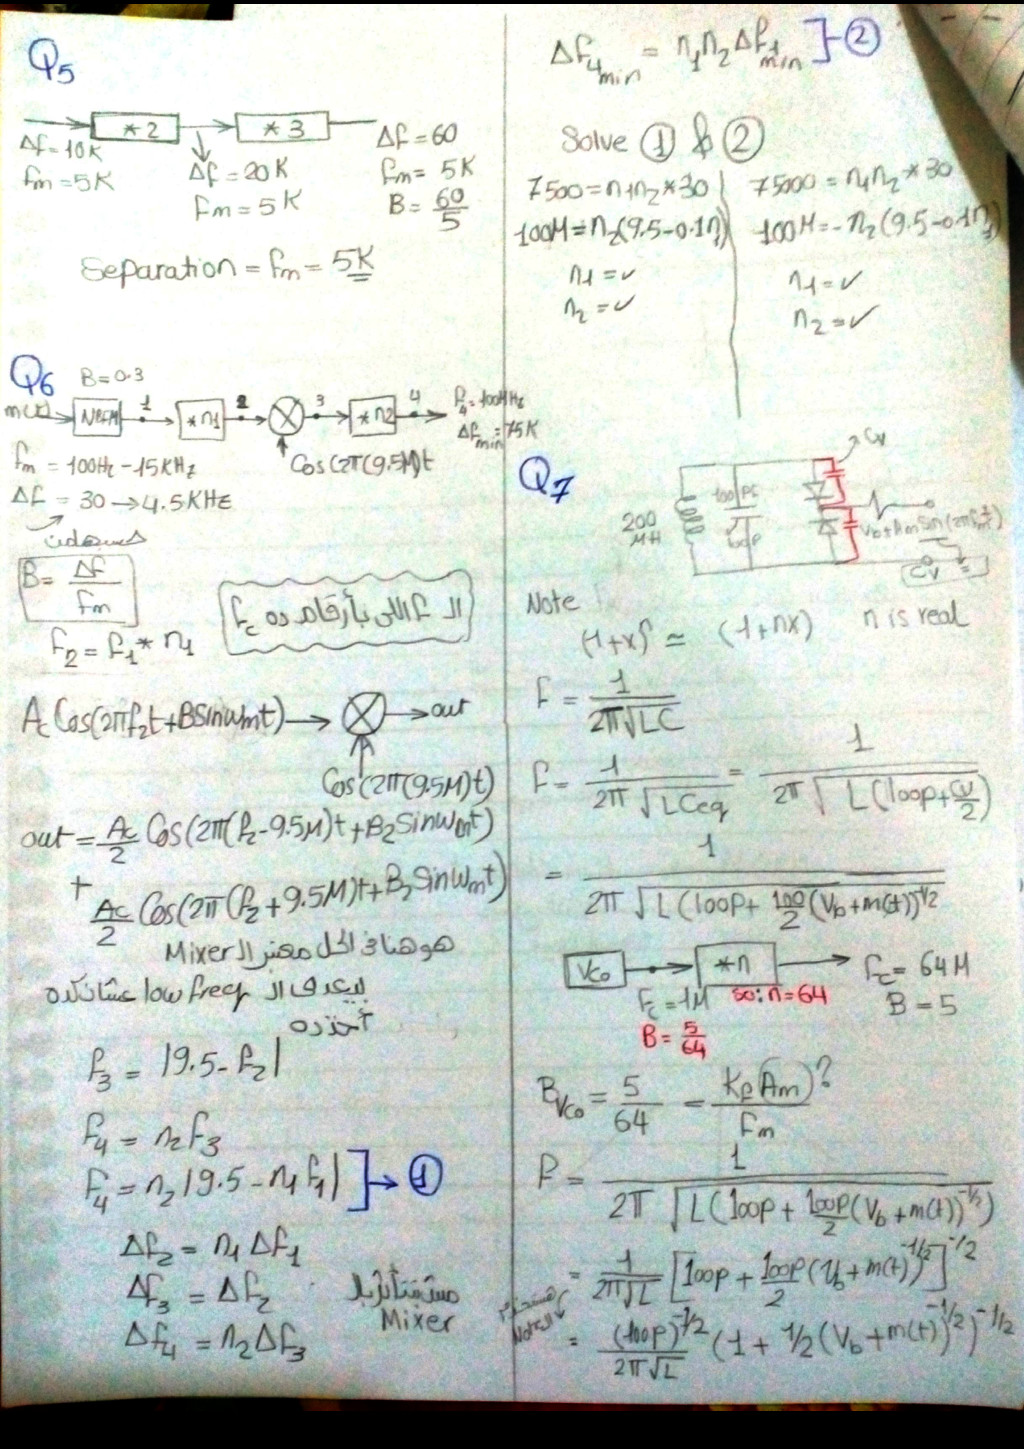 Q5
*2
*3
Δf = 10K
fm = 5K
Δf = 20K
fm = 5K
Δf = 60
fm = 5K
B = 60/5
Separation = fm = 5K
Q6
B = 0.3
m(t)
NBFM
1
*n1
2
3
*n2
4
f4 = 100MHz
Δfmin = 75K
Cos(2π(9.5M)t
fm = 100Hz - 15KHz
Δf = 30 → 4.5KHz
B = Δf/fm
f2 = f1 * n1
ال f اللى بأرقام ده fc
Ac Cos(2πf2t + B Sinωmt) → ⊗ → out
Cos(2π(9.5M)t)
out = Ac/2 Cos(2π(f2 - 9.5M)t + B2 Sinωmt)
+ Ac/2 Cos(2π(f2 + 9.5M)t + B2 Sinωmt)
هو هنا فى الحل معتبر ال Mixer
low freq ال عشان كده
f3 = |9.5 - f2|
f4 = n2 f3
f4 = n2 |9.5 - n1 f1| ] → ①
Δf2 = n1 Δf1
Δf3 = Δf2
Mixer
Δf4 = n2 Δf3
Δf4min = n1n2 Δf1min ] - ②
Solve ① & ②
7500 = n1n2 * 30
100M = n2(9.5 - 0.1n1)
n1 = ✓
n2 = ✓
75000 = n1n2 * 30
100M = -n2(9.5 - 0.1n1)
n1 = ✓
n2 = ✓
Q7
Cv
200
MH
100pF
Vb + Am Sin(2πfmt)
Cv
Note
(1+x)^n ≃ (1+nx) n is real
F = 1/(2π√LC)
F = 1/(2π√LCeq) = 1/(2π√L(100p + Cv/2))
= 1/(2π√L(100p + 100/2 (Vb + m(t))^-1/2
VCO
*n
fc = 1M
so: n = 64
B = 5/64
fc = 64M
B = 5
BVCO = 5/64 = Kf(Am)?/fm
F = 1/(2π√L(100p + 100p/2 (Vb + m(t))^-1/2))
= 1/(2π√L) [100p + 100p/2 (Vb + m(t))^-1/2]^-1/2
= (100p)^-1/2/(2π√L) (1 + 1/2 (Vb + m(t))^-1/2)^-1/2